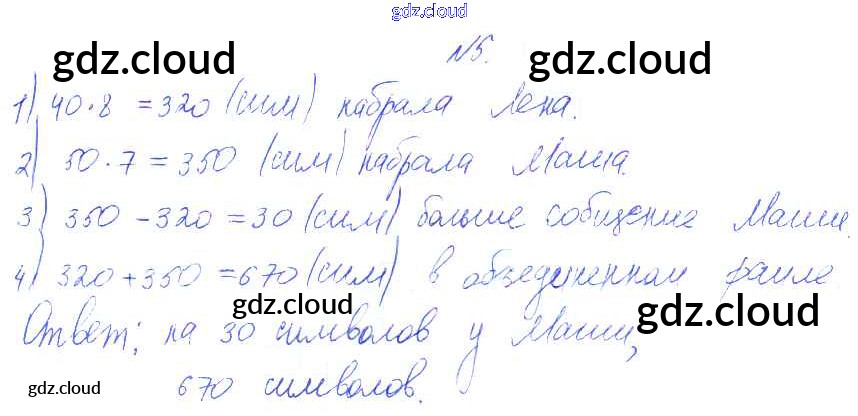 gdz.cloud
gdz.cloud
gdz.cloud
№5.
1) 40·8 = 320 (сим) набрала Лена.
2) 50·7 = 350 (сим) набрала Маша.
3) 350 - 320 = 30 (сим) больше сообщение Маши.
4) 320 + 350 = 670 (сим) в объединенном файле
gdz.cloud
gdz.cloud
Ответ: на 30 символов у Маши,
gdz.cloud
670 символов.